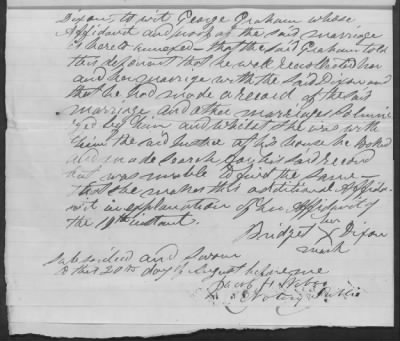 Dixon, to wit George Graham whose
Affidavit and proof as the said marriage
is hereto annexed - that the said Graham told
this deponent that he well recollected her
and her marrige with the said Dixon and
that he had made a record of the said
marriage and other marriages solemni-
zed by him and whilst she was with
him the said Justice at his house he looked
and made search for his said record
but was unable to find the same -
that she makes this additional Affida-
vit in explanation of her Affidavit of
the 10th instant.
her
Bridget X Dixon
mark
Subscribed and Sworn
to this 20th day of August before me
Jacob H
Notary Public